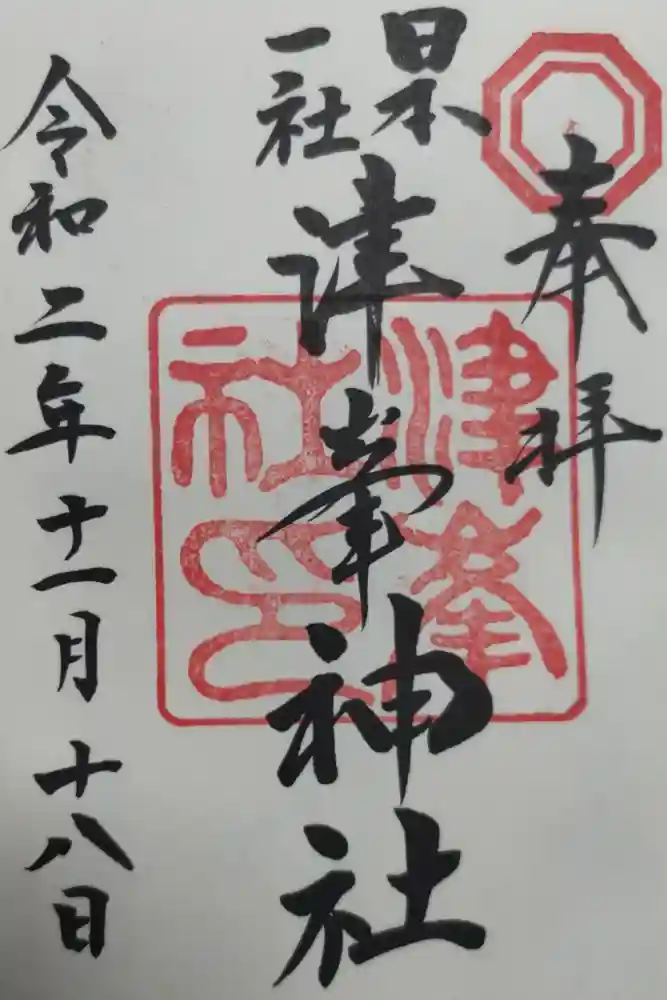 奉拝
日本
一社
津峯神社
令和二年十一月十八日
津峯
社印